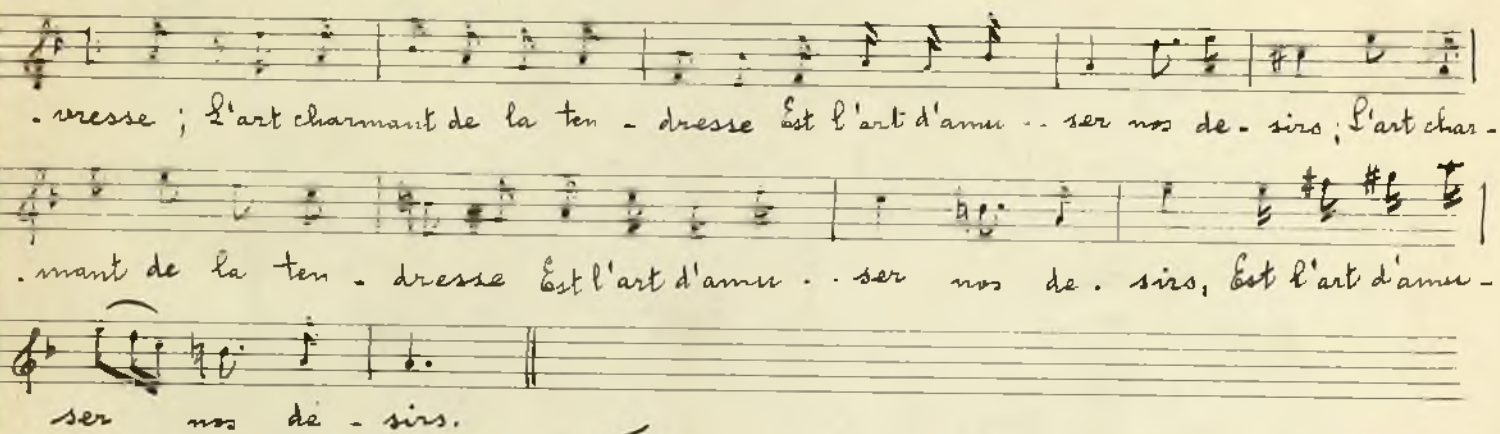 . vresse ; L'art charmant de la ten - dresse Est l'art d'amu - - ser nos de - sirs ; L'art char -
. mant de la ten - dresse Est l'art d'amu - - ser nos de - sirs, Est l'art d'amu -
ser nos dé - sirs.